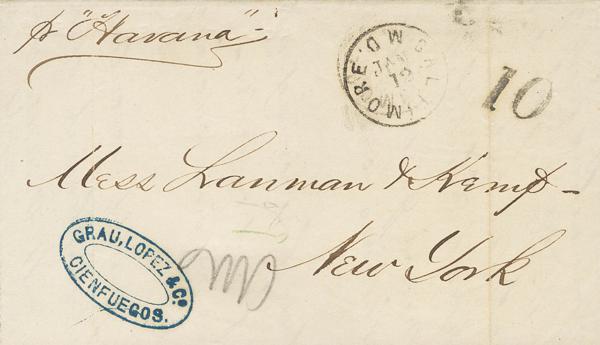 pr "Havana"
BALTIMORE MD.
JAN
12
10
Mess Lanman & Kemp
New York
GRAU, LOPEZ & Co
CIENFUEGOS.